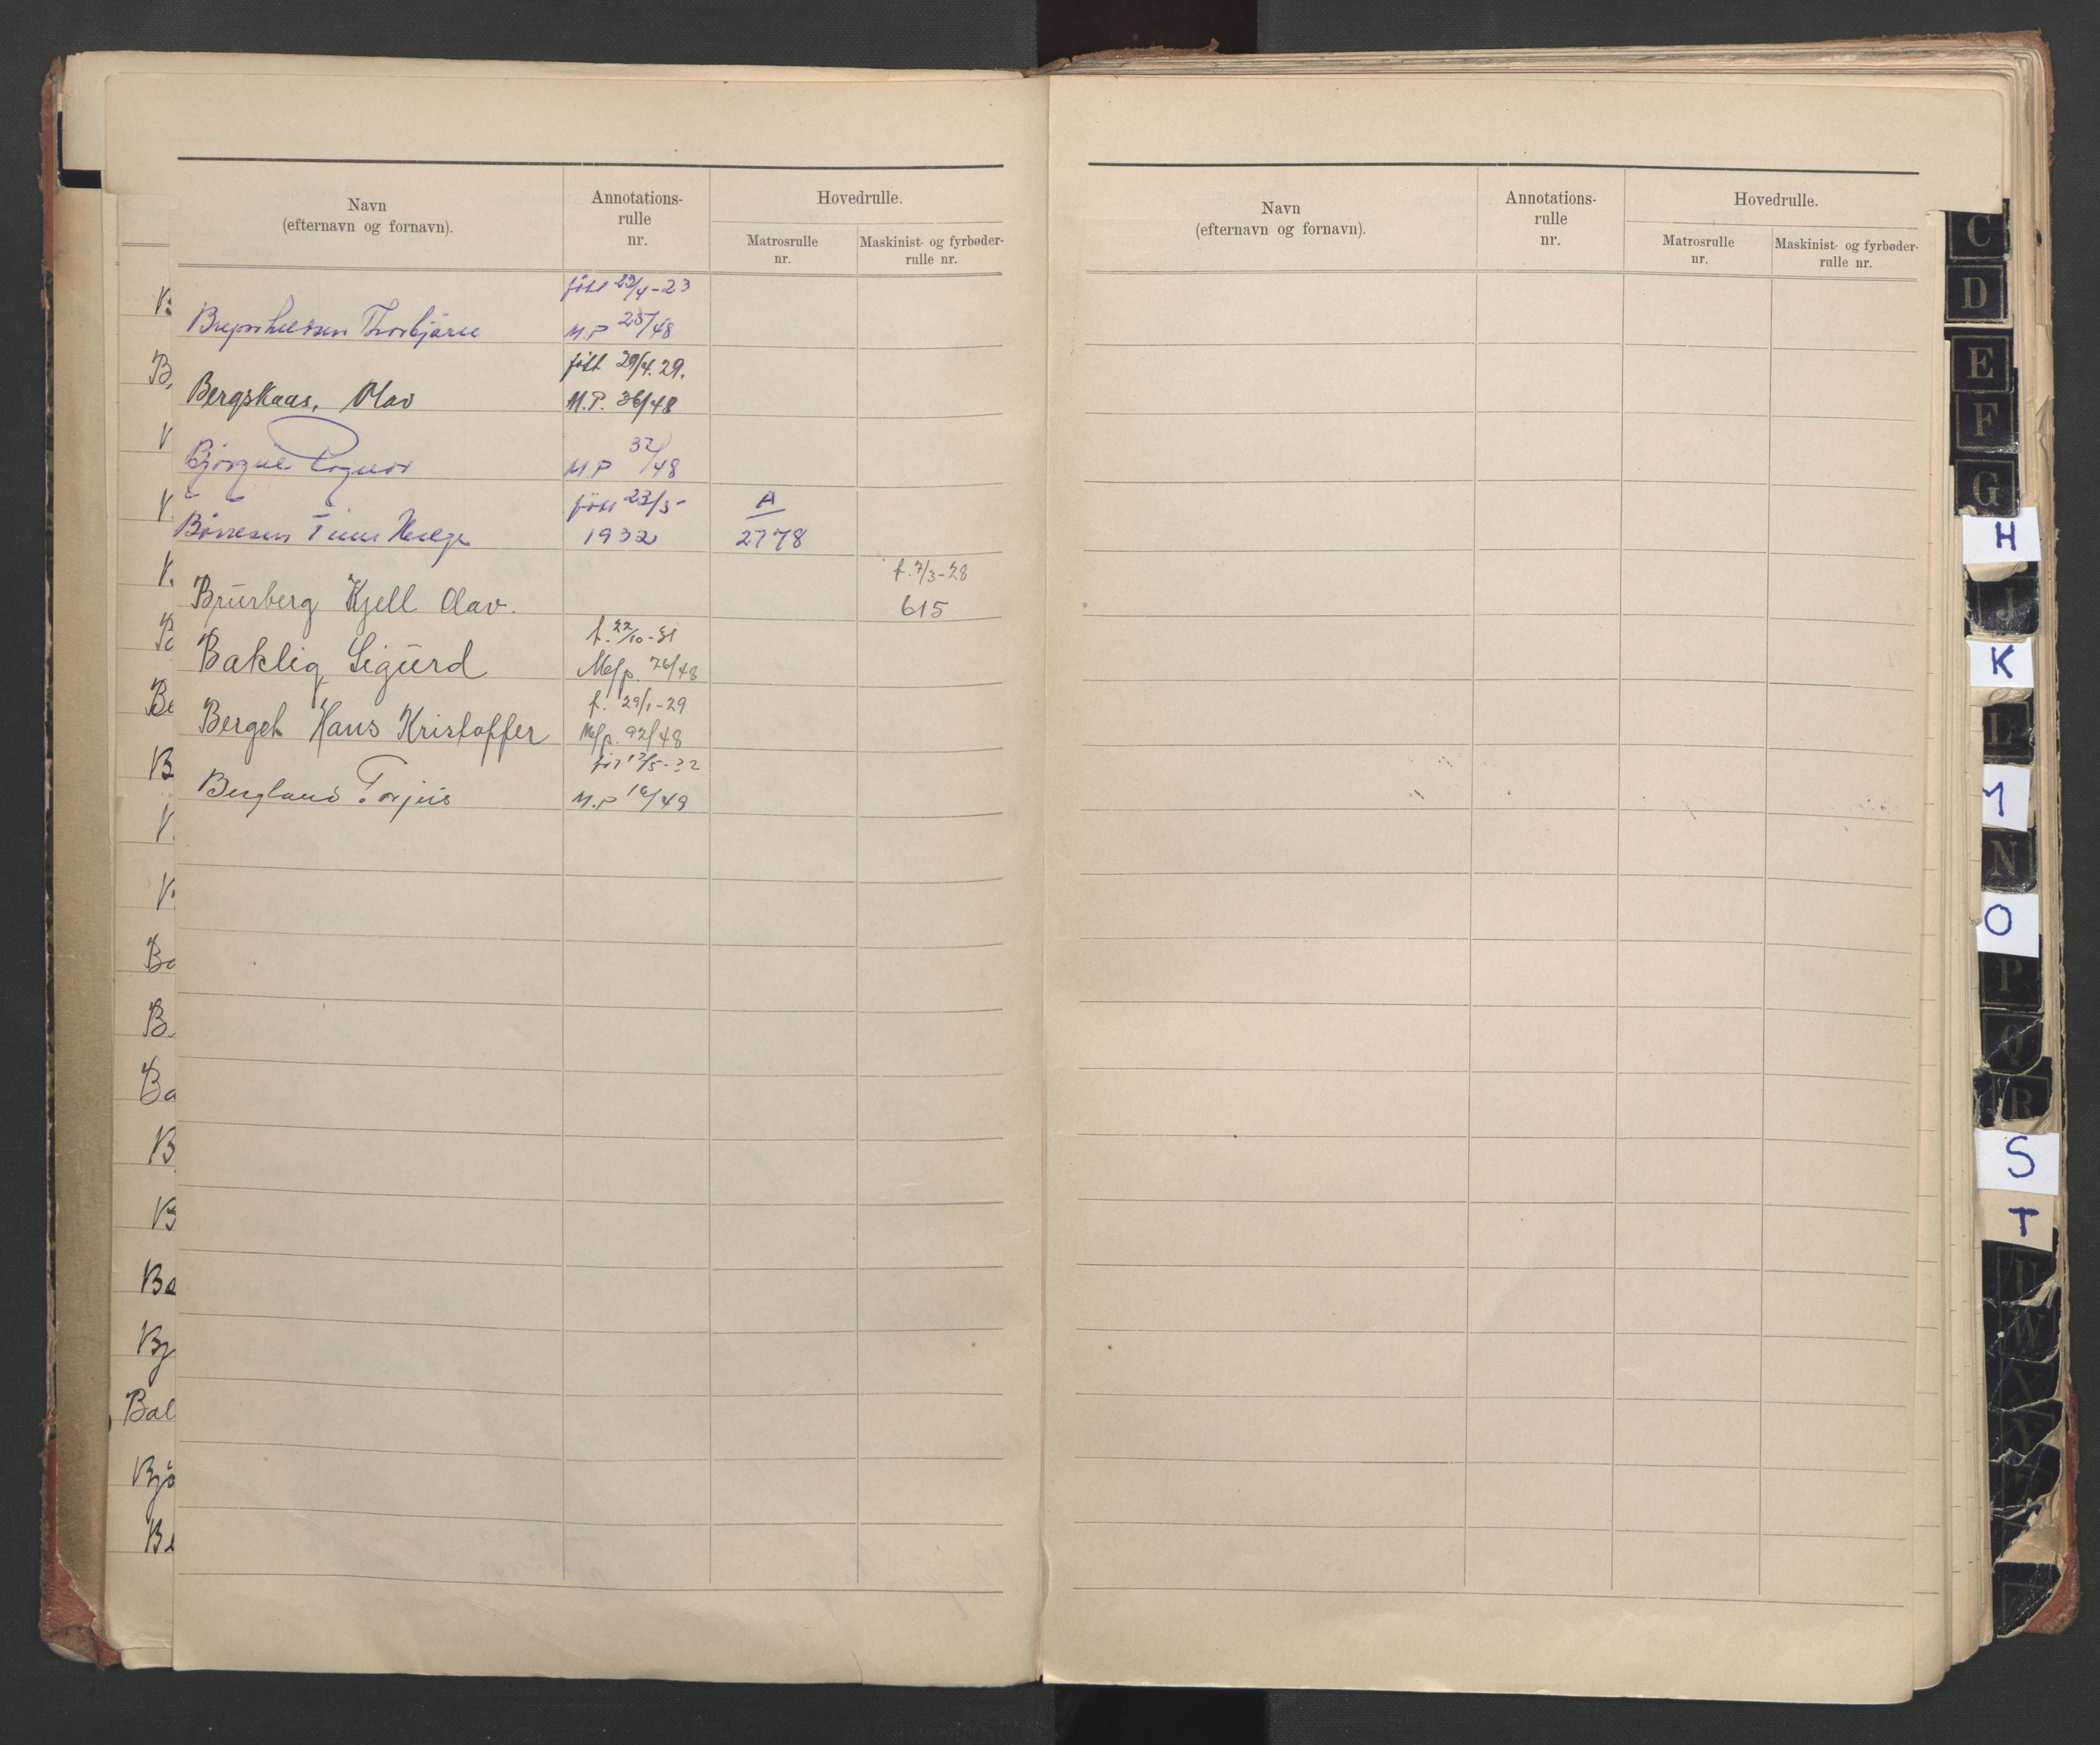 Navn
(efternavn og fornavn).
Annotations-
rulle
nr.
Hovedrulle.
Matrosrulle
nr.
Maskinist- og fyrbøder-
rulle nr.
født 23/4-23
Thorbjørn M.P 25/48
født 29/4.29.
Bergskaas, Olav M.P. 36/48
32/48
M.P
født 23/5- A
Børresen Helge 1932 2778
f. 7/3-28
Brurberg Kjell Olav. 615
f. 22/10-31
Baklig Sigurd M/p. 76/48
f. 29/1-29
Berget Hans Kristoffer M/p. 92/48
Bergland Torjus M.P 16/49
Navn
(efternavn og fornavn).
Annotations-
rulle
nr.
Hovedrulle.
Matrosrulle
nr.
Maskinist- og fyrbøder-
rulle nr.
C
D
E
F
G
H
J
K
L
M
N
O
P
Q
R
S
T
U
W
X
Y